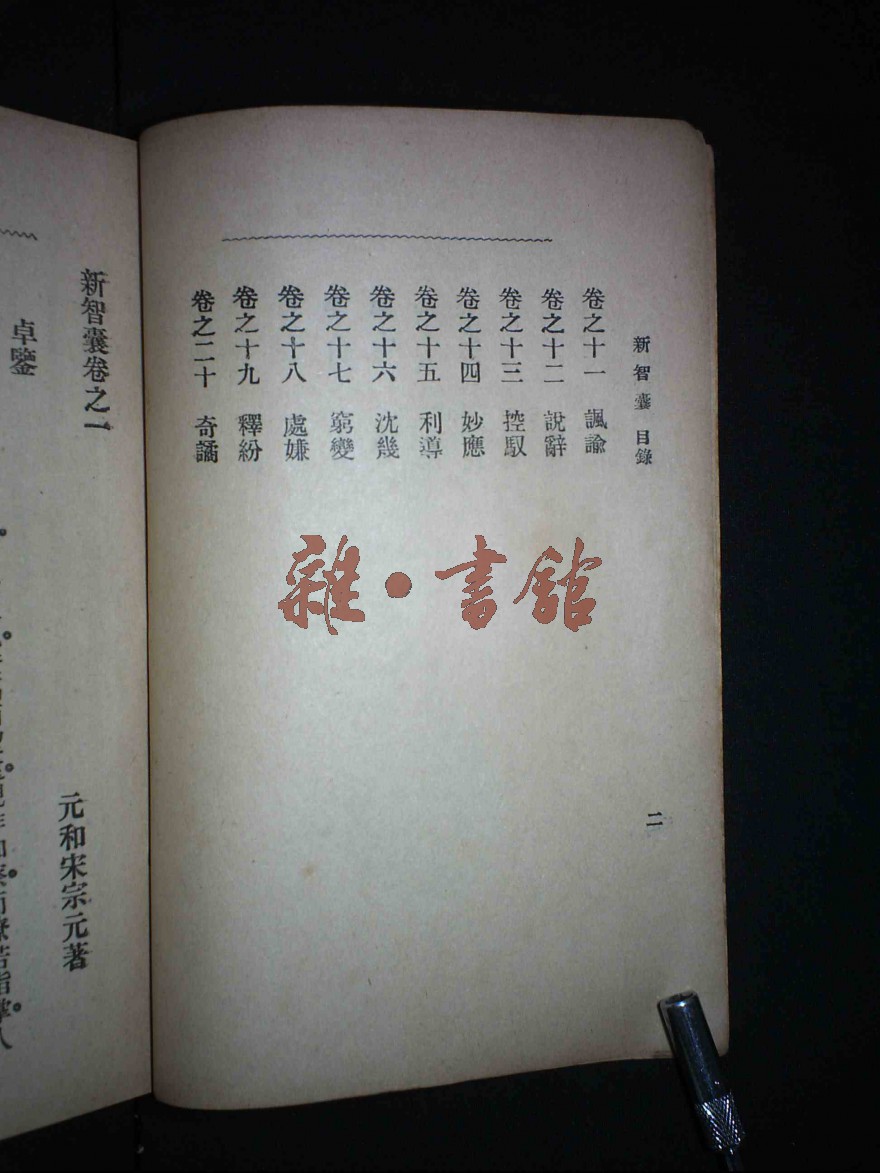 新智囊 目錄
卷之十一 諷諭
卷之十二 說辭
卷之十三 控馭
卷之十四 妙應
卷之十五 利導
卷之十六 沈幾
卷之十七 窮變
卷之十八 處嫌
卷之十九 釋紛
卷之二十 奇譎
二
雜·書館
新智囊卷之一
元和宋宗元著
卓鑒